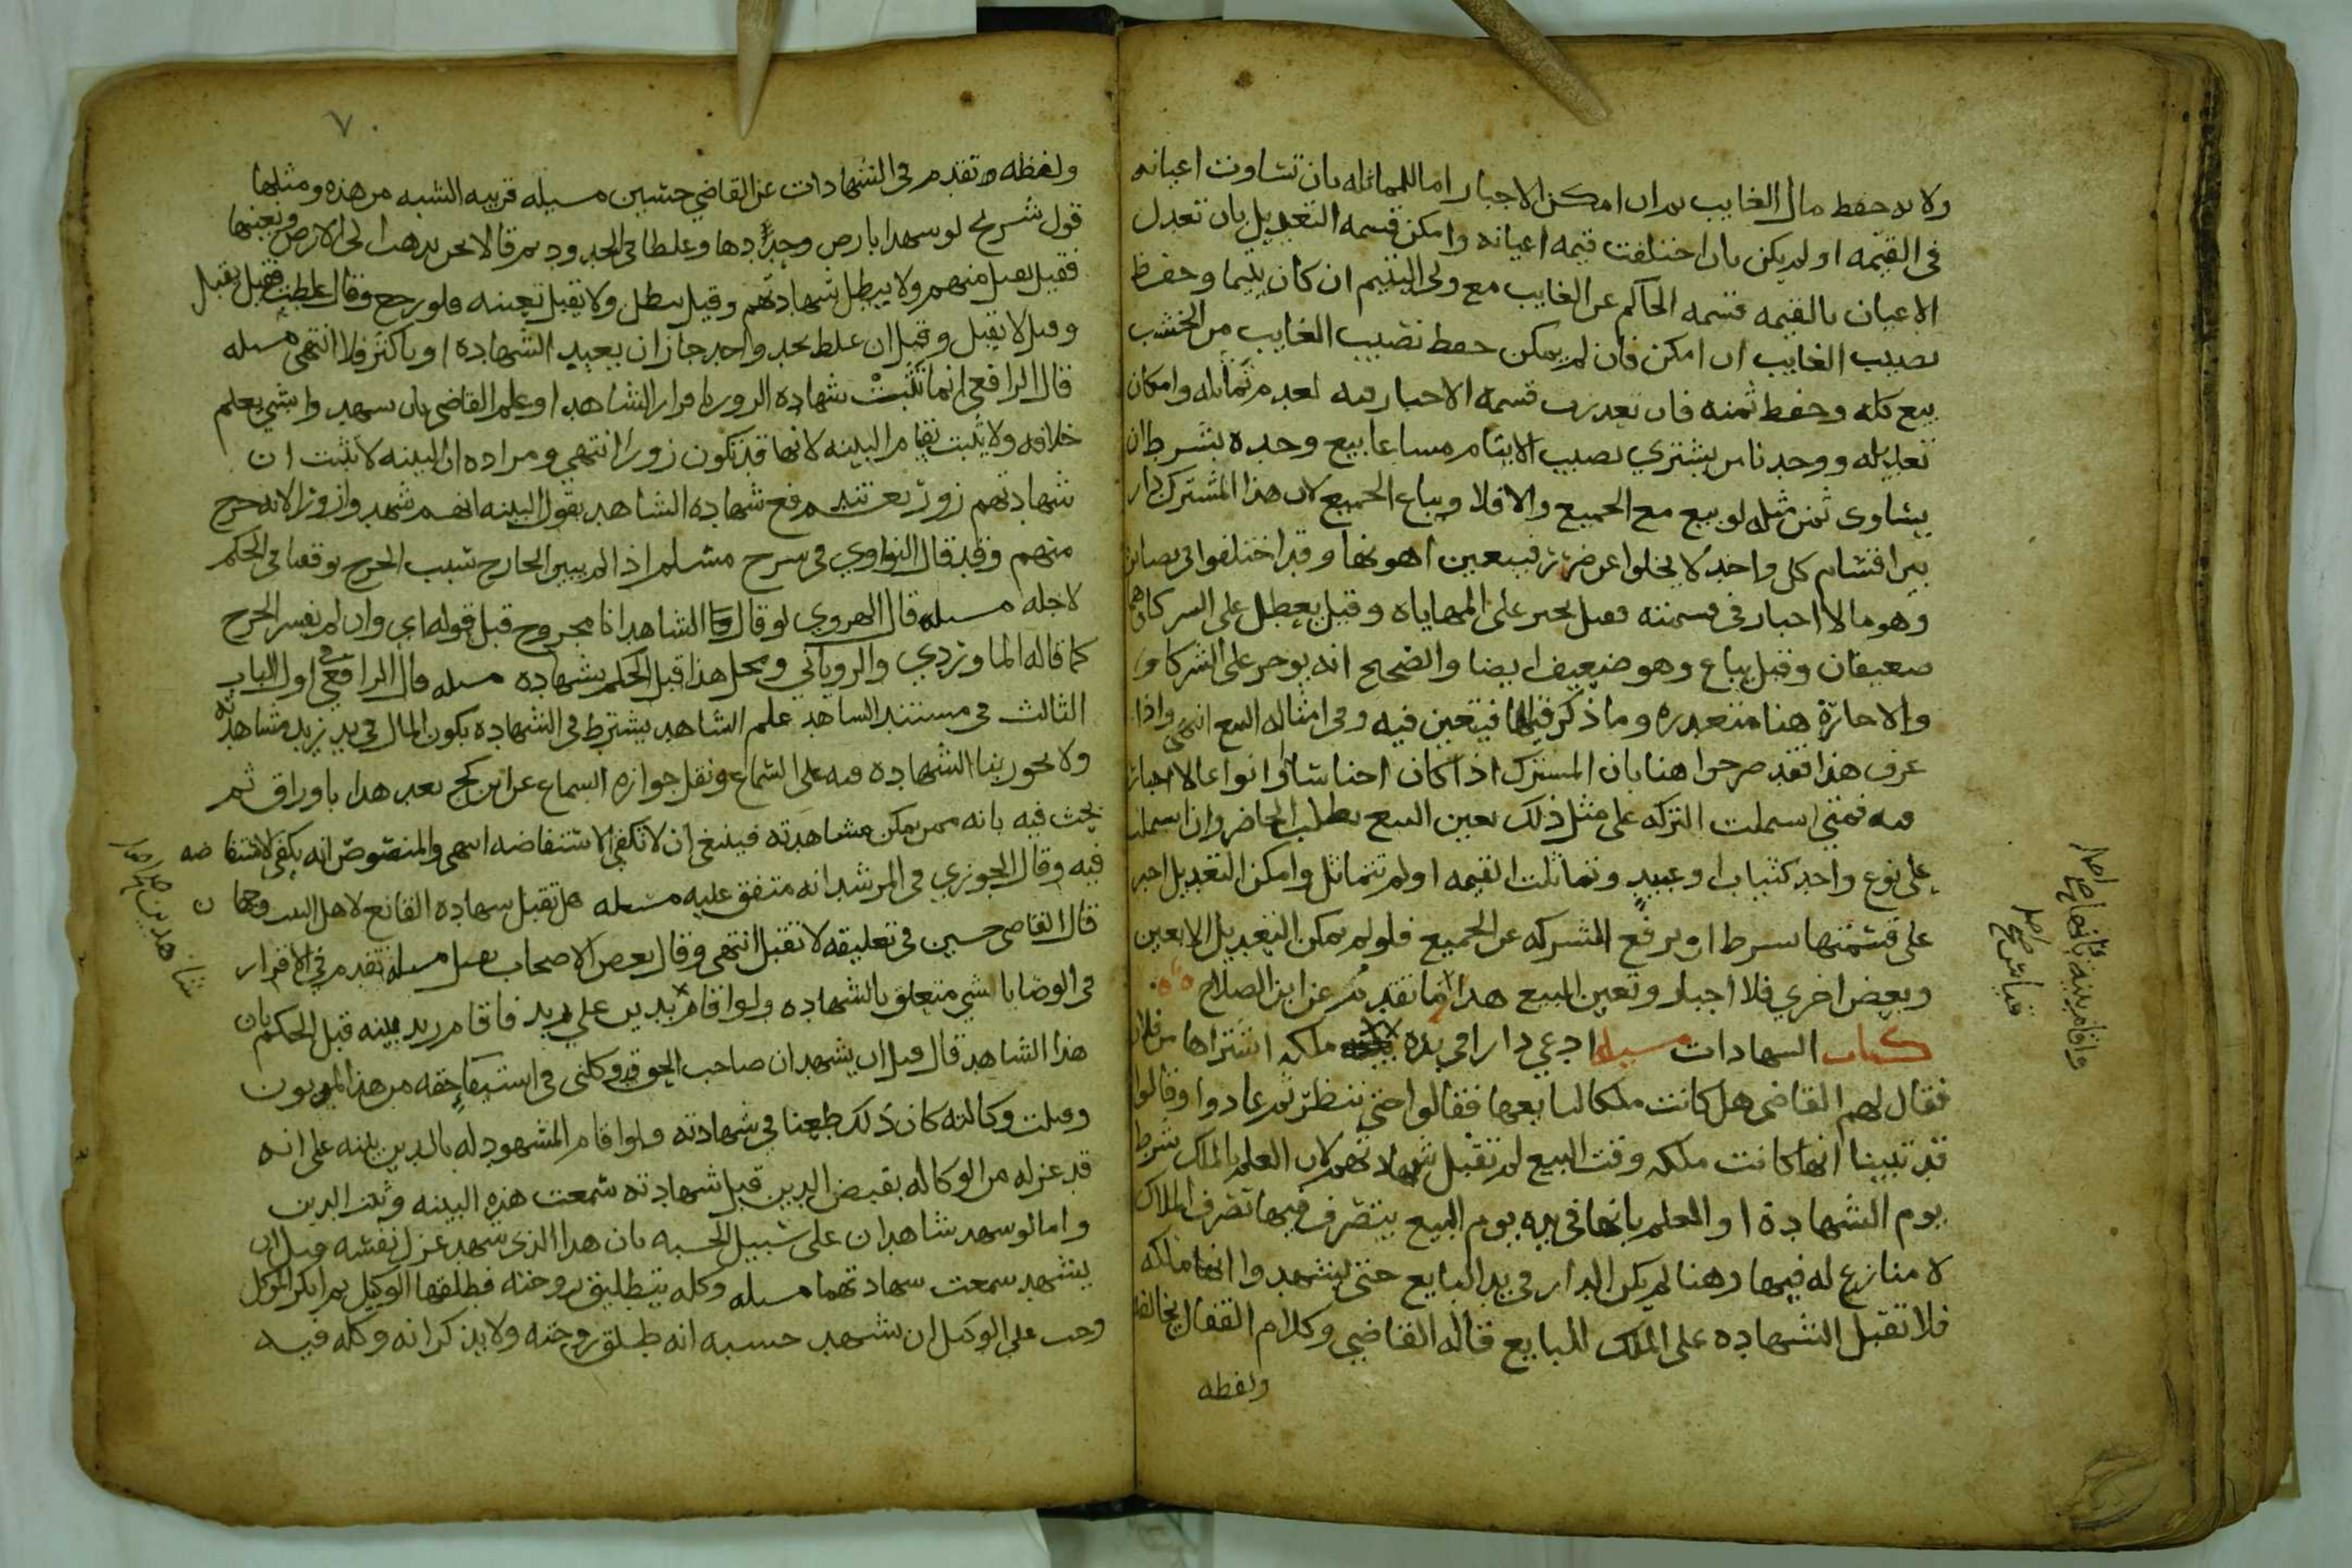 ولاية حفظ مال الغايب ثم ان امكن الاجبار اما للمماثله بان تساوت اعيانه
في القيمه او لم يكن بان اختلفت قيمه اعيانه وامكن قسمه التعديل بان تعدل
الاعيان بالقيمه قسمه الحاكم عن الغايب مع ولي اليتيم ان كان يتيما وحفظ
نصيب الغايب ان امكن فان لم يمكن حفظ نصيب الغايب من الخشب
بيع كله وحفظ ثمنه فان تعذرت قسمه الاجبار فيه لعدم تماثله وامكان
تعديله ووجدنا من يشتري نصيب الايتام مشاعا بيع وحده بشرط ان
يساوى ثمن مثله لو بيع مع الجميع والا فلا ويباع الجميع لان هذا المشترك دار
بين اقسام كل واحد لا يخلوا عن ضرر فيتعين اهونها وقد اختلفوا في نصاير
وهو مالا اجبار في قسمته فقيل يجبر على المهاياه وقيل يعطل على الشركا وهما
ضعيفان وقيل يباع وهو ضعيف ايضا والصحيح انه يوجر على الشركا
والاجارة هنا متعذره وما ذكر فيها فيتعين فيه وفي امثاله البيع انتهى واذا
عرف هذا فقد صرحوا هنا بان المشترك اذا كان اجناسا او انواعا لا اجبار
فيه فمتى اشتملت التركه على مثل ذلك تعين البيع بطلب الحاضر وان اشتملت
على نوع واحد كثياب او عبيد وتماثلت القيمه او لم تتماثل وامكن التعديل اجبر
على قسمتها بشرط ان يرفع الشركه عن الجميع فلو لم يمكن التعديل الا بعين
وبعض اخرى فلا اجبار وتعين البيع هذا ما تقدم عن ابن الصلاح
كتاب الشهادات مسيله ادعي دارا في يده ملكه اشتراها من فلان
فقال لهم القاضي هل كانت ملكا لبايعها فقالوا حتى ننظر ثم عادوا وقالوا
قد تبينا انها كانت ملكه وقت البيع لم تقبل شهادتهم لان العلم بالملك شرط
يوم الشهادة او العلم بانها في يده يوم البيع يتصرف فيها تصرف الملاك
لا منازع له فيها وهنا لم يكن الدار في يد البايع حتى يشهدوا انها ملكه
فلا تقبل الشهاده على الملك للبايع قاله القاضي وكلام القفال يخالفه
ولفظه
٧
ولفظه وتقدم في الشهادات عن القاضي حسين مسيله قريبه الشبه من هذه ومثلها
قول شريح لو شهدا بارض وحدداها وغلطا في الحدود ثم قالا نحن نذهب الى الارض ونعينها
فقيل يقبل منهم ولا يبطل شهادتهم وقيل يبطل ولا يقبل تعيينه فلو رجع وقال غلطت فقيل يقبل
وقيل لا يقبل وقيل ان غلط بحد واحد جاز ان يعيد الشهاده او باكثر فلا انتهى مسله
قال الرافعي انما تثبت شهاده الزور باقرار الشاهد او علم القاضي بان شهد وا بشي يعلم
خلافه ولا يثبت بقيام البينه لانها قد تكون زورا انتهى ومراده ان البينه لا تثبت ان
شهادتهم زور نعم تندفع شهاده الشاهد بقول البينه انهم شهدوا زورا لانه جرح
منهم وقد قال النواوي في شرح مسلم اذا لم يبين الجارح سبب الجرح توقفنا في الحكم
لاجله مسله قال الهروي لو قال الشاهد انا مجروح قبل قوله اي وان لم يفسر الجرح
كما قاله الماوردي والروياني ومحل هذا قبل الحكم بشهاده مسله قال الرافعي في اول الباب
الثالث في مستند الشاهد علم الشاهد يشترط في الشهاده بكون المال في يد زيد مشاهدته
ولا يجوز بنا الشهاده فيه على السماع ونقل جوازه السماع عن ابن كج بعد هذا باوراق ثم
بحث فيه بانه ممن يمكن مشاهدته فينبغي ان لا تكفي الاستفاضه انتهى والمنصوص انه يكفي الاستفاضه
فيه وقال الجوزي في المرشد انه متفق عليه مسله هل تقبل شهادة القانع لاهل البيت وجهان
قال القاضي حسين في تعليقه لا تقبل انتهى وقال بعض الاصحاب يقبل مسله تقدم في الاقرار
في الوصايا لشي متعلق بالشهاده ولو اقام بدين على زيد فاقام زيد بينه قبل الحكم بان
هذا الشاهد قال قبل ان يشهد ان صاحب الحق قد وكلني في استيفا حقه من هذا المديون
وقبلت وكالته كان ذلك طعنا في شهادته ولو اقام المشهود له بالدين بينه على انه
قد عزله من الوكاله بقبض الدين قبل شهادته سمعت هذه البينه وثبت الدين
واما لو شهد شاهدان على سبيل الحسبه بان هذا الذى شهد عزل نفسه قبل ان
يشهد سمعت شهادتهما مسله وكله بتطليق زوجته فطلقها الوكيل ثم انكر الموكل
وجب على الوكيل ان يشهد حسبه انه طلق زوجته ولا يذكر انه وكله فيه
شاهدين
واقام بينه بانها